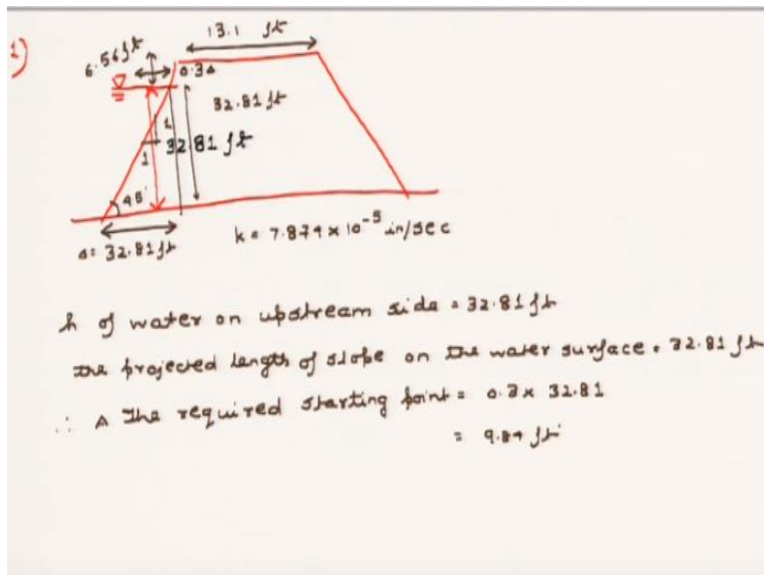 1)
13.1 ft
6.56 ft
0.3Δ
32.81 ft
1
32.81 ft
1
45°
Δ = 32.81 ft
k = 7.874 × 10⁻⁵ in/sec
h of water on upstream side = 32.81 ft
the projected length of slope on the water surface = 32.81 ft
∴ A The required starting point = 0.3 × 32.81
= 9.84 ft